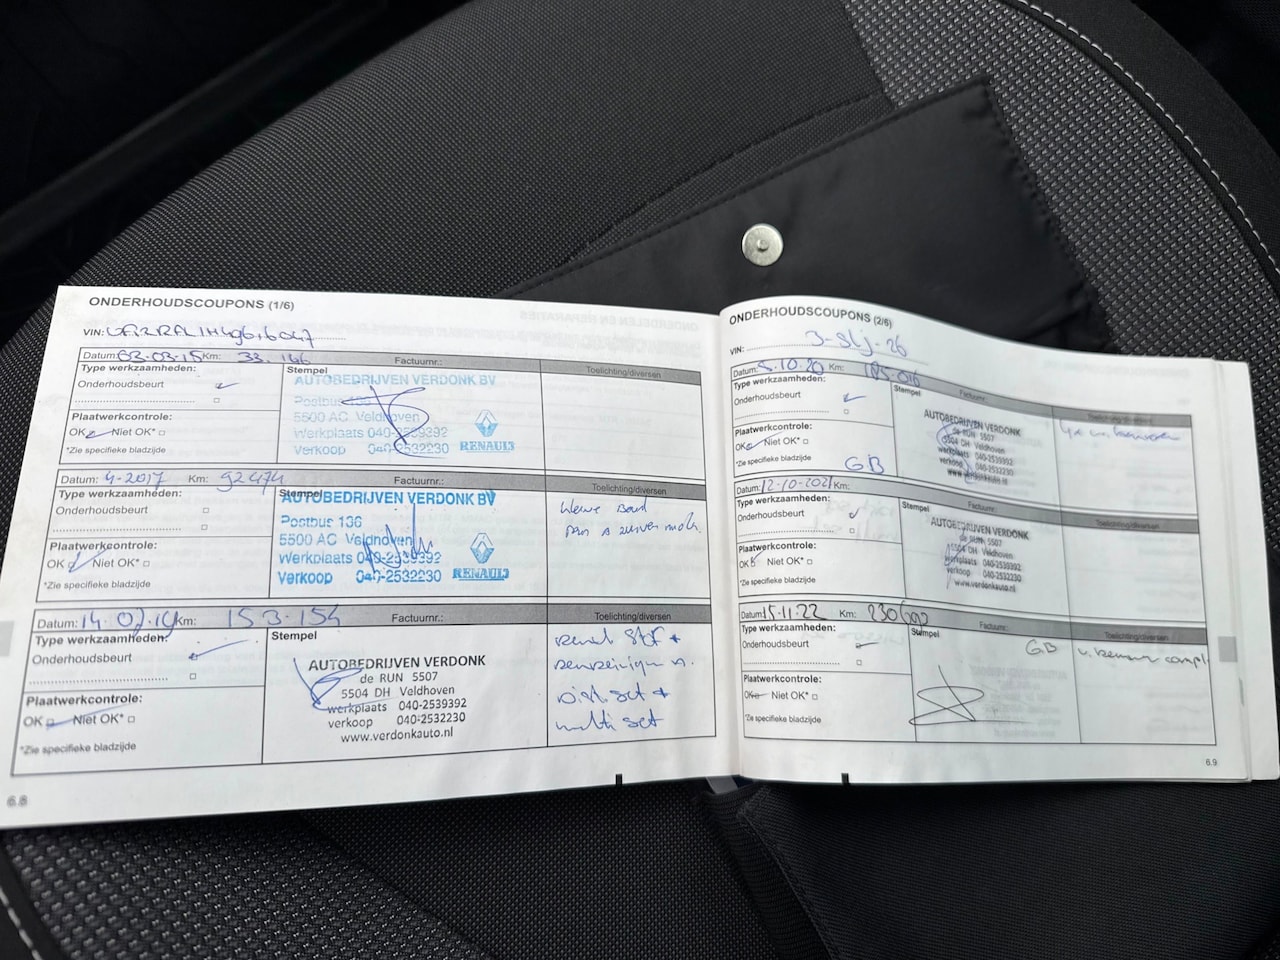 ONDERHOUDSCOUPONS (1/6)
VIN:
Datum: 03-03-15 Km: 33.146 Factuurnr.:
Type werkzaamheden: Stempel Toelichting/diversen
Onderhoudsbeurt
AUTOBEDRIJVEN VERDONK BV
Postbus 136
5500 AC Veldhoven
Werkplaats 040-2539392
Verkoop 040-2532230
RENAULT
Plaatwerkcontrole:
OK Niet OK*
*Zie specifieke bladzijde
Datum: 4-2017 Km: 92474
Type werkzaamheden: Stempel Toelichting/diversen
Onderhoudsbeurt
AUTOBEDRIJVEN VERDONK BV
Postbus 136
5500 AC Veldhoven
Werkplaats 040-2539392
Verkoop 040-2532230
RENAULT
Plaatwerkcontrole:
OK Niet OK*
*Zie specifieke bladzijde
Datum: 14.02.19 Km: 153.154 Factuurnr.:
Type werkzaamheden: Stempel Toelichting/diversen
Onderhoudsbeurt
AUTOBEDRIJVEN VERDONK
de RUN 5507
5504 DH Veldhoven
werkplaats 040-2539392
verkoop 040-2532230
www.verdonkauto.nl
set +
multi set
Plaatwerkcontrole:
OK Niet OK*
*Zie specifieke bladzijde
6.8
ONDERHOUDSCOUPONS (2/6)
VIN: 3-SLJ-26
Datum: 5.10.20 Km:
Type werkzaamheden: Stempel Factuurnr.: Toelichting/diversen
Onderhoudsbeurt
AUTOBEDRIJVEN VERDONK
de RUN 5507
5504 DH Veldhoven
werkplaats 040-2539392
verkoop 040-2532230
www.verdonkauto.nl
Plaatwerkcontrole:
OK Niet OK*
*Zie specifieke bladzijde GB
Datum: 12-10-2021 Km:
Type werkzaamheden: Stempel Toelichting/diversen
Onderhoudsbeurt
AUTOBEDRIJVEN VERDONK
de RUN 5507
5504 DH Veldhoven
werkplaats 040-2539392
verkoop 040-2532230
www.verdonkauto.nl
Plaatwerkcontrole:
OK Niet OK*
*Zie specifieke bladzijde
Datum: 15.11.22 Km: Factuurnr.:
Type werkzaamheden: Stempel Toelichting/diversen
Onderhoudsbeurt GB
Plaatwerkcontrole:
OK Niet OK*
*Zie specifieke bladzijde
6.9